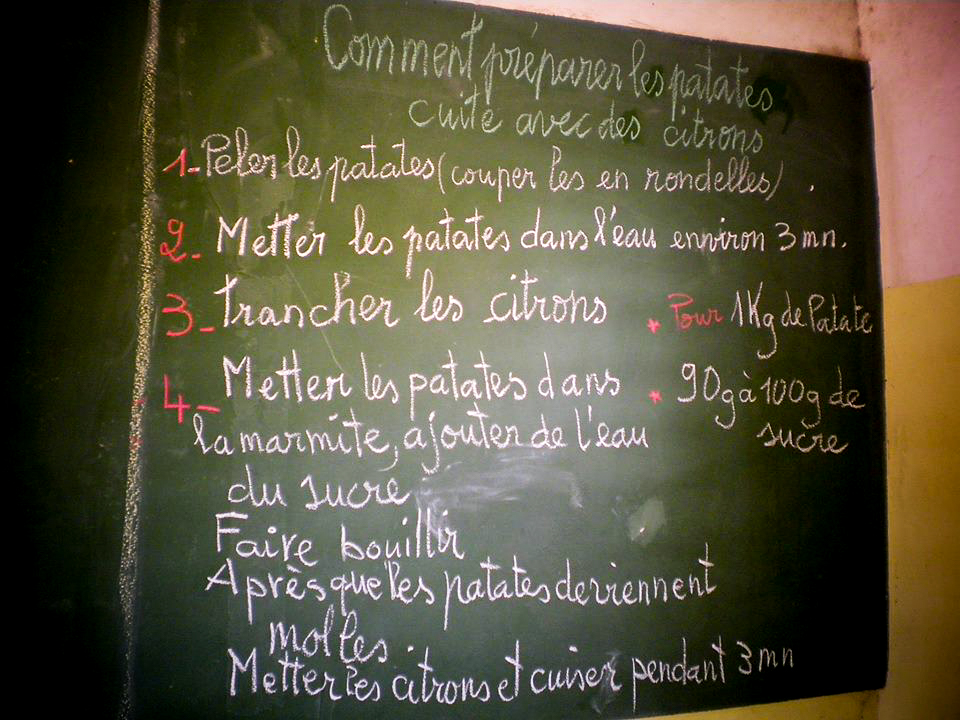 Comment préparer les patates
cuite avec des citrons
1- Peler les patates (couper les en rondelles).
2- Metter les patates dans l'eau environ 3 mn.
3- Trancher les citrons
* Pour 1Kg de Patate
4- Metter les patates dans
* 90g à 100g de
la marmite, ajouter de l'eau
sucre
du sucre
Faire bouillir
Après que les patates deviennent
molles.
Metter les citrons et cuiser pendant 3 mn